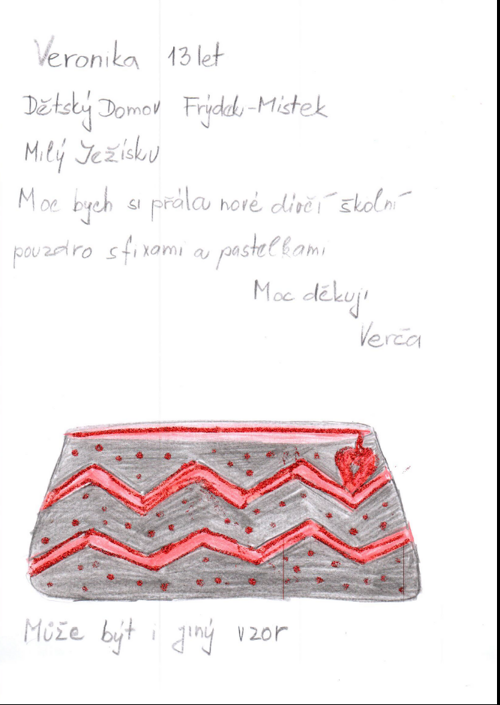 Veronika 13 let
Dětský Domov Frýdek-Místek
Milý Ježíšku
Moc bych si přála nové dívčí školní
pouzdro s fixami a pastelkami
Moc děkuji
Verča
Může být i jiný vzor